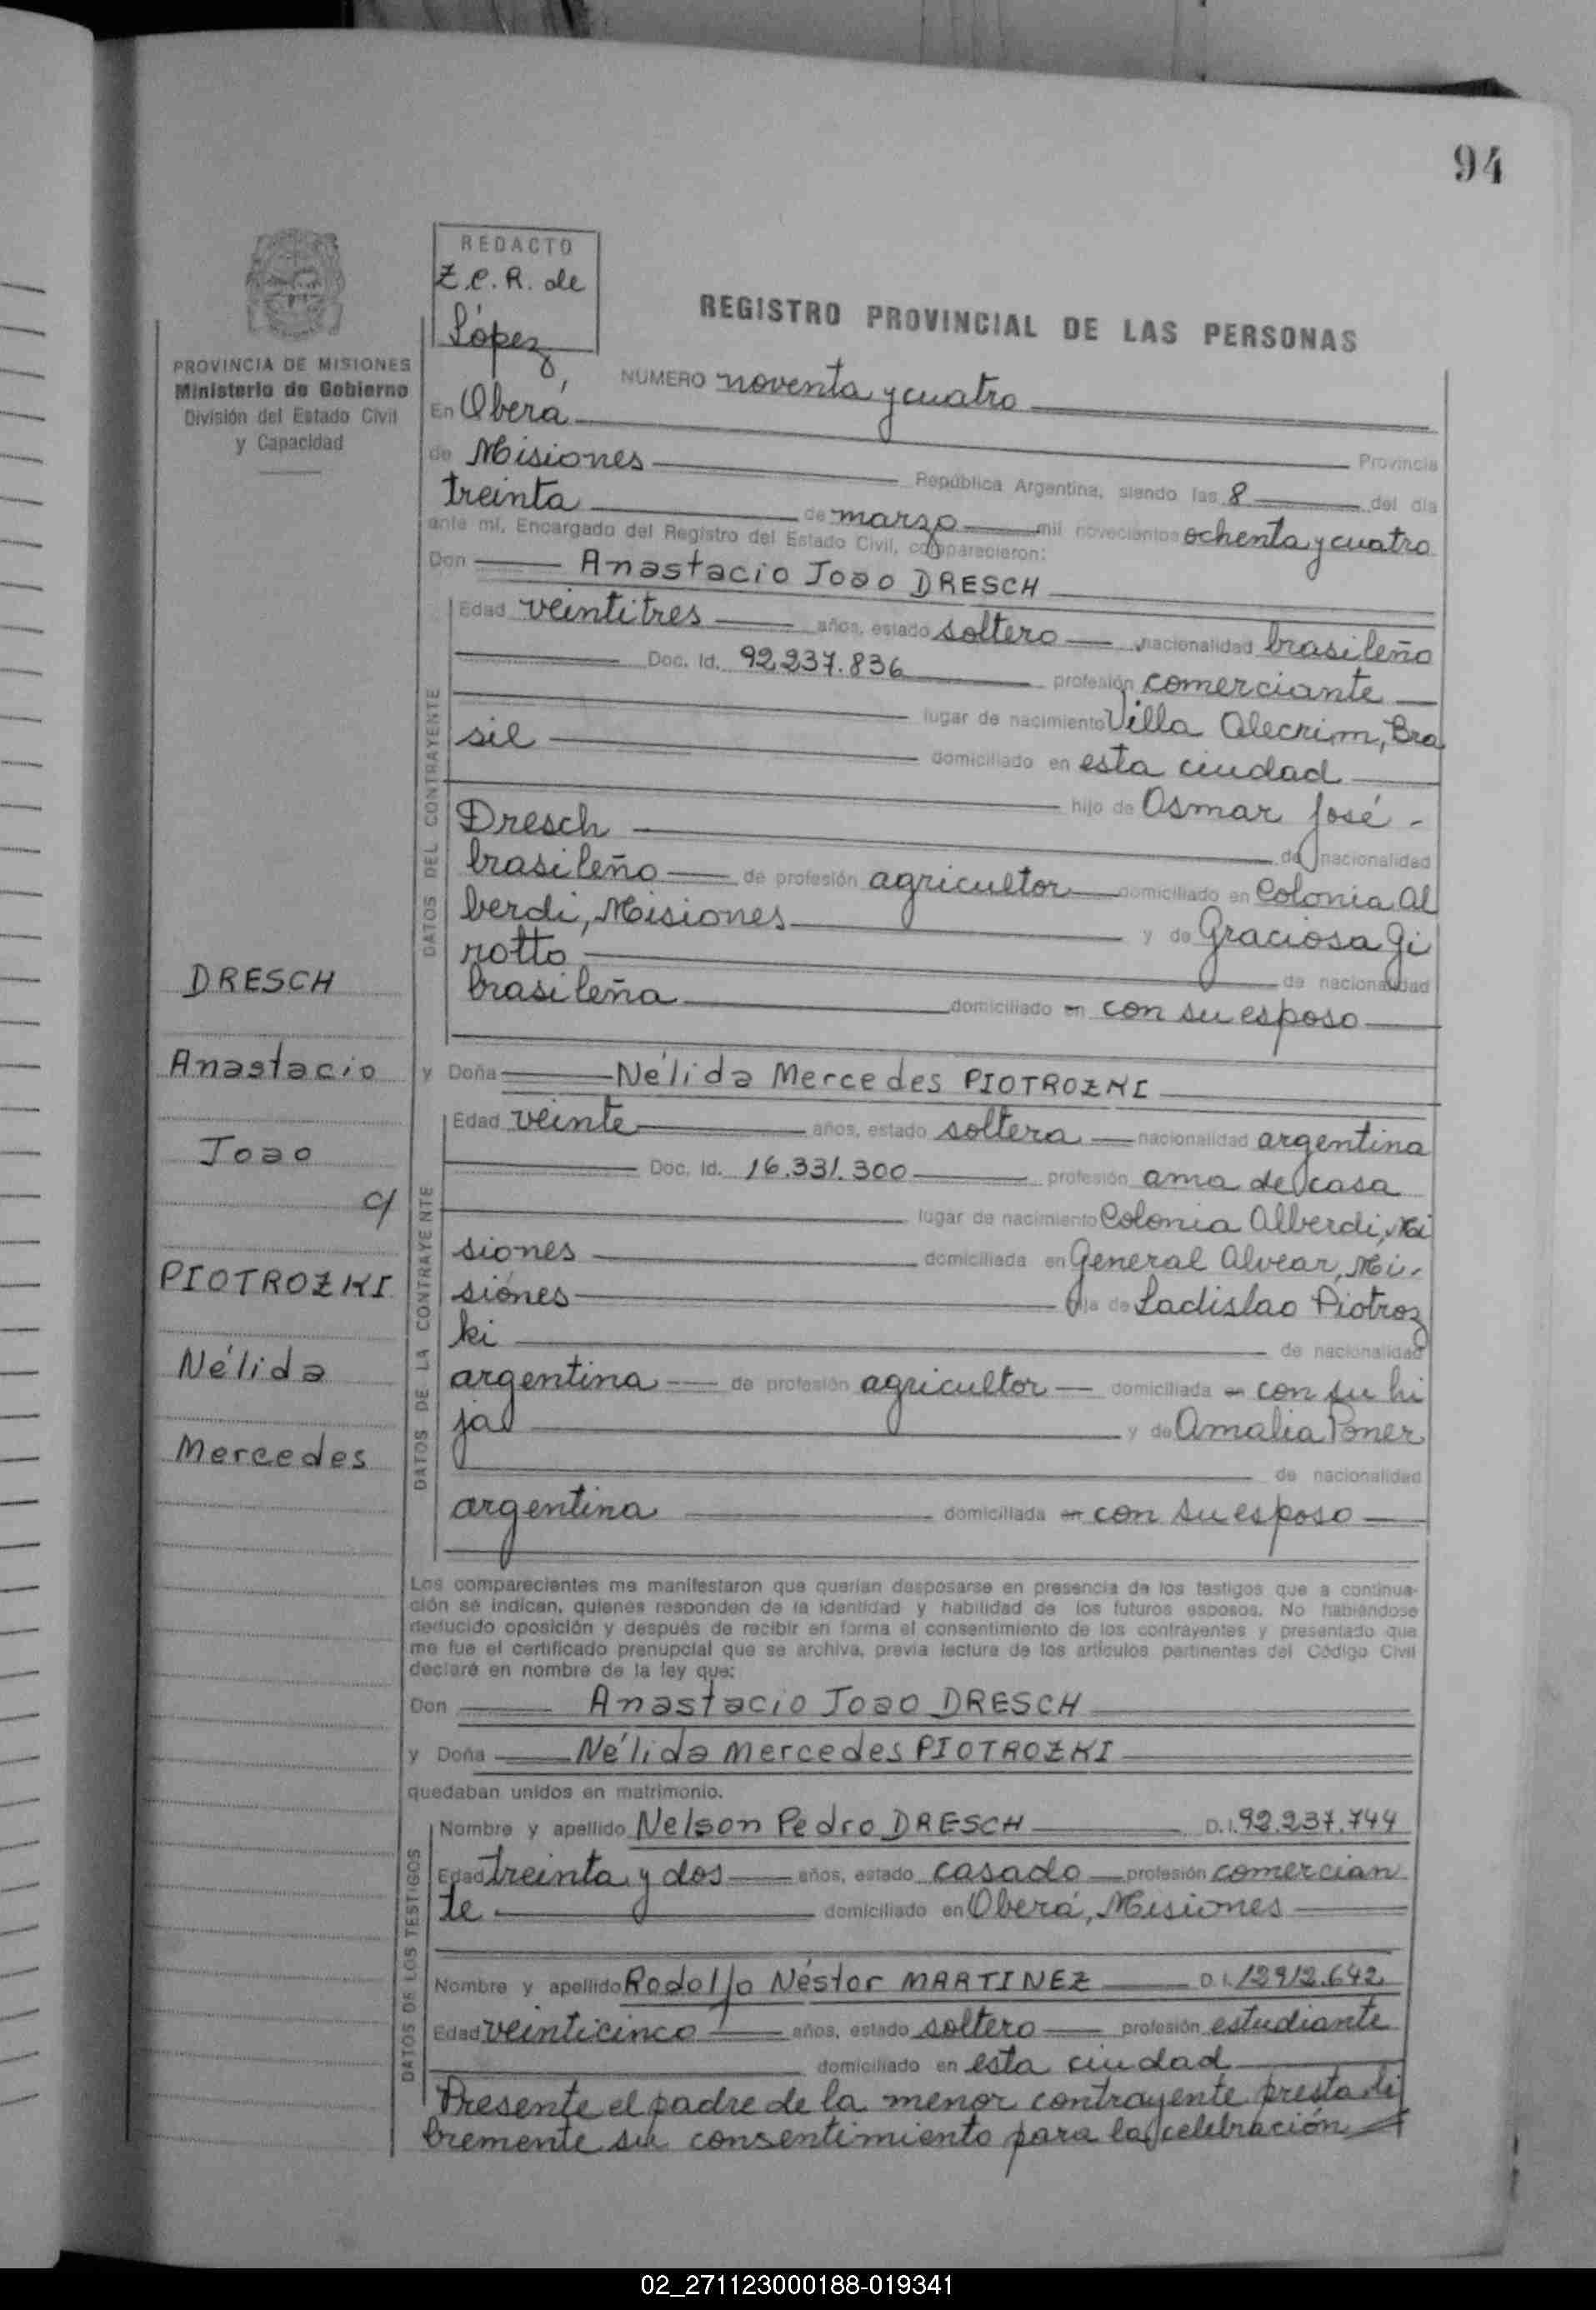 94
REDACTO
Z.C.R. de
López
REGISTRO PROVINCIAL DE LAS PERSONAS
PROVINCIA DE MISIONES
Ministerio de Gobierno
División del Estado Civil
y Capacidad
NUMERO noventa y cuatro
En Oberá
Provincia
de Misiones República Argentina, siendo las 8 del día
treinta de marzo mil novecientos ochenta y cuatro
ante mí, Encargado del Registro del Estado Civil, comparecieron:
Don Anastacio Joao DRESCH
Edad veintitres años, estado soltero nacionalidad brasileño
Doc. Id. 92.237.836 profesión comerciante
lugar de nacimiento Villa Alecrim, Bra
sil domiciliado en esta ciudad
hijo de Osmar José -
Dresch de nacionalidad
brasileño de profesión agricultor domiciliado en Colonia Al
berdi, Misiones y de Graciosa Gi
rotto de nacionalidad
brasileña domiciliado en con su esposo
DATOS DEL CONTRAYENTE
y Doña Nélida Mercedes PIOTROZKI
Edad veinte años, estado soltera nacionalidad argentina
Doc. Id. 16.331.300 profesión ama de casa
lugar de nacimiento Colonia Alberdi, Mi
siones domiciliada en General Alvear, Mi-
siones hija de Ladislao Piotroz
ki de nacionalidad
argentina de profesión agricultor domiciliada en con su hi
ja y de Amalia Poner
de nacionalidad
argentina domiciliada en con su esposo
DATOS DE LA CONTRAYENTE
DRESCH
Anastacio
Joao
c/
PIOTROZKI
Nélida
Mercedes
Los comparecientes me manifestaron que querían desposarse en presencia de los testigos que a continua-
ción se indican, quienes responden de la identidad y habilidad de los futuros esposos. No habiéndose
deducido oposición y después de recibir en forma el consentimiento de los contrayentes y presentado que
me fue el certificado prenupcial que se archiva, previa lectura de los artículos pertinentes del Código Civil
declaré en nombre de la ley que:
Don Anastacio Joao DRESCH
y Doña Nélida Mercedes PIOTROZKI
quedaban unidos en matrimonio.
Nombre y apellido Nelson Pedro DRESCH D.I. 92.237.744
Edad treinta y dos años, estado casado profesión comercian
te domiciliado en Oberá, Misiones
Nombre y apellido Rodolfo Néstor MARTINEZ D.I. 12912.642
Edad veinticinco años, estado soltero profesión estudiante
domiciliado en esta ciudad
DATOS DE LOS TESTIGOS
Presente el padre de la menor contrayente presta li
bremente su consentimiento para la celebración
02_271123000188-019341